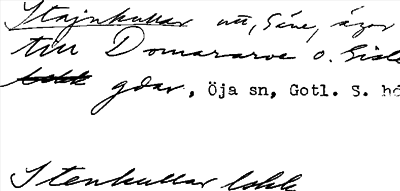 Stajnkullar utt, Sine, ägor
till Domararve o. Gisle
gdar, Öja sn, Gotl. S. hd
Stenkullar lokk